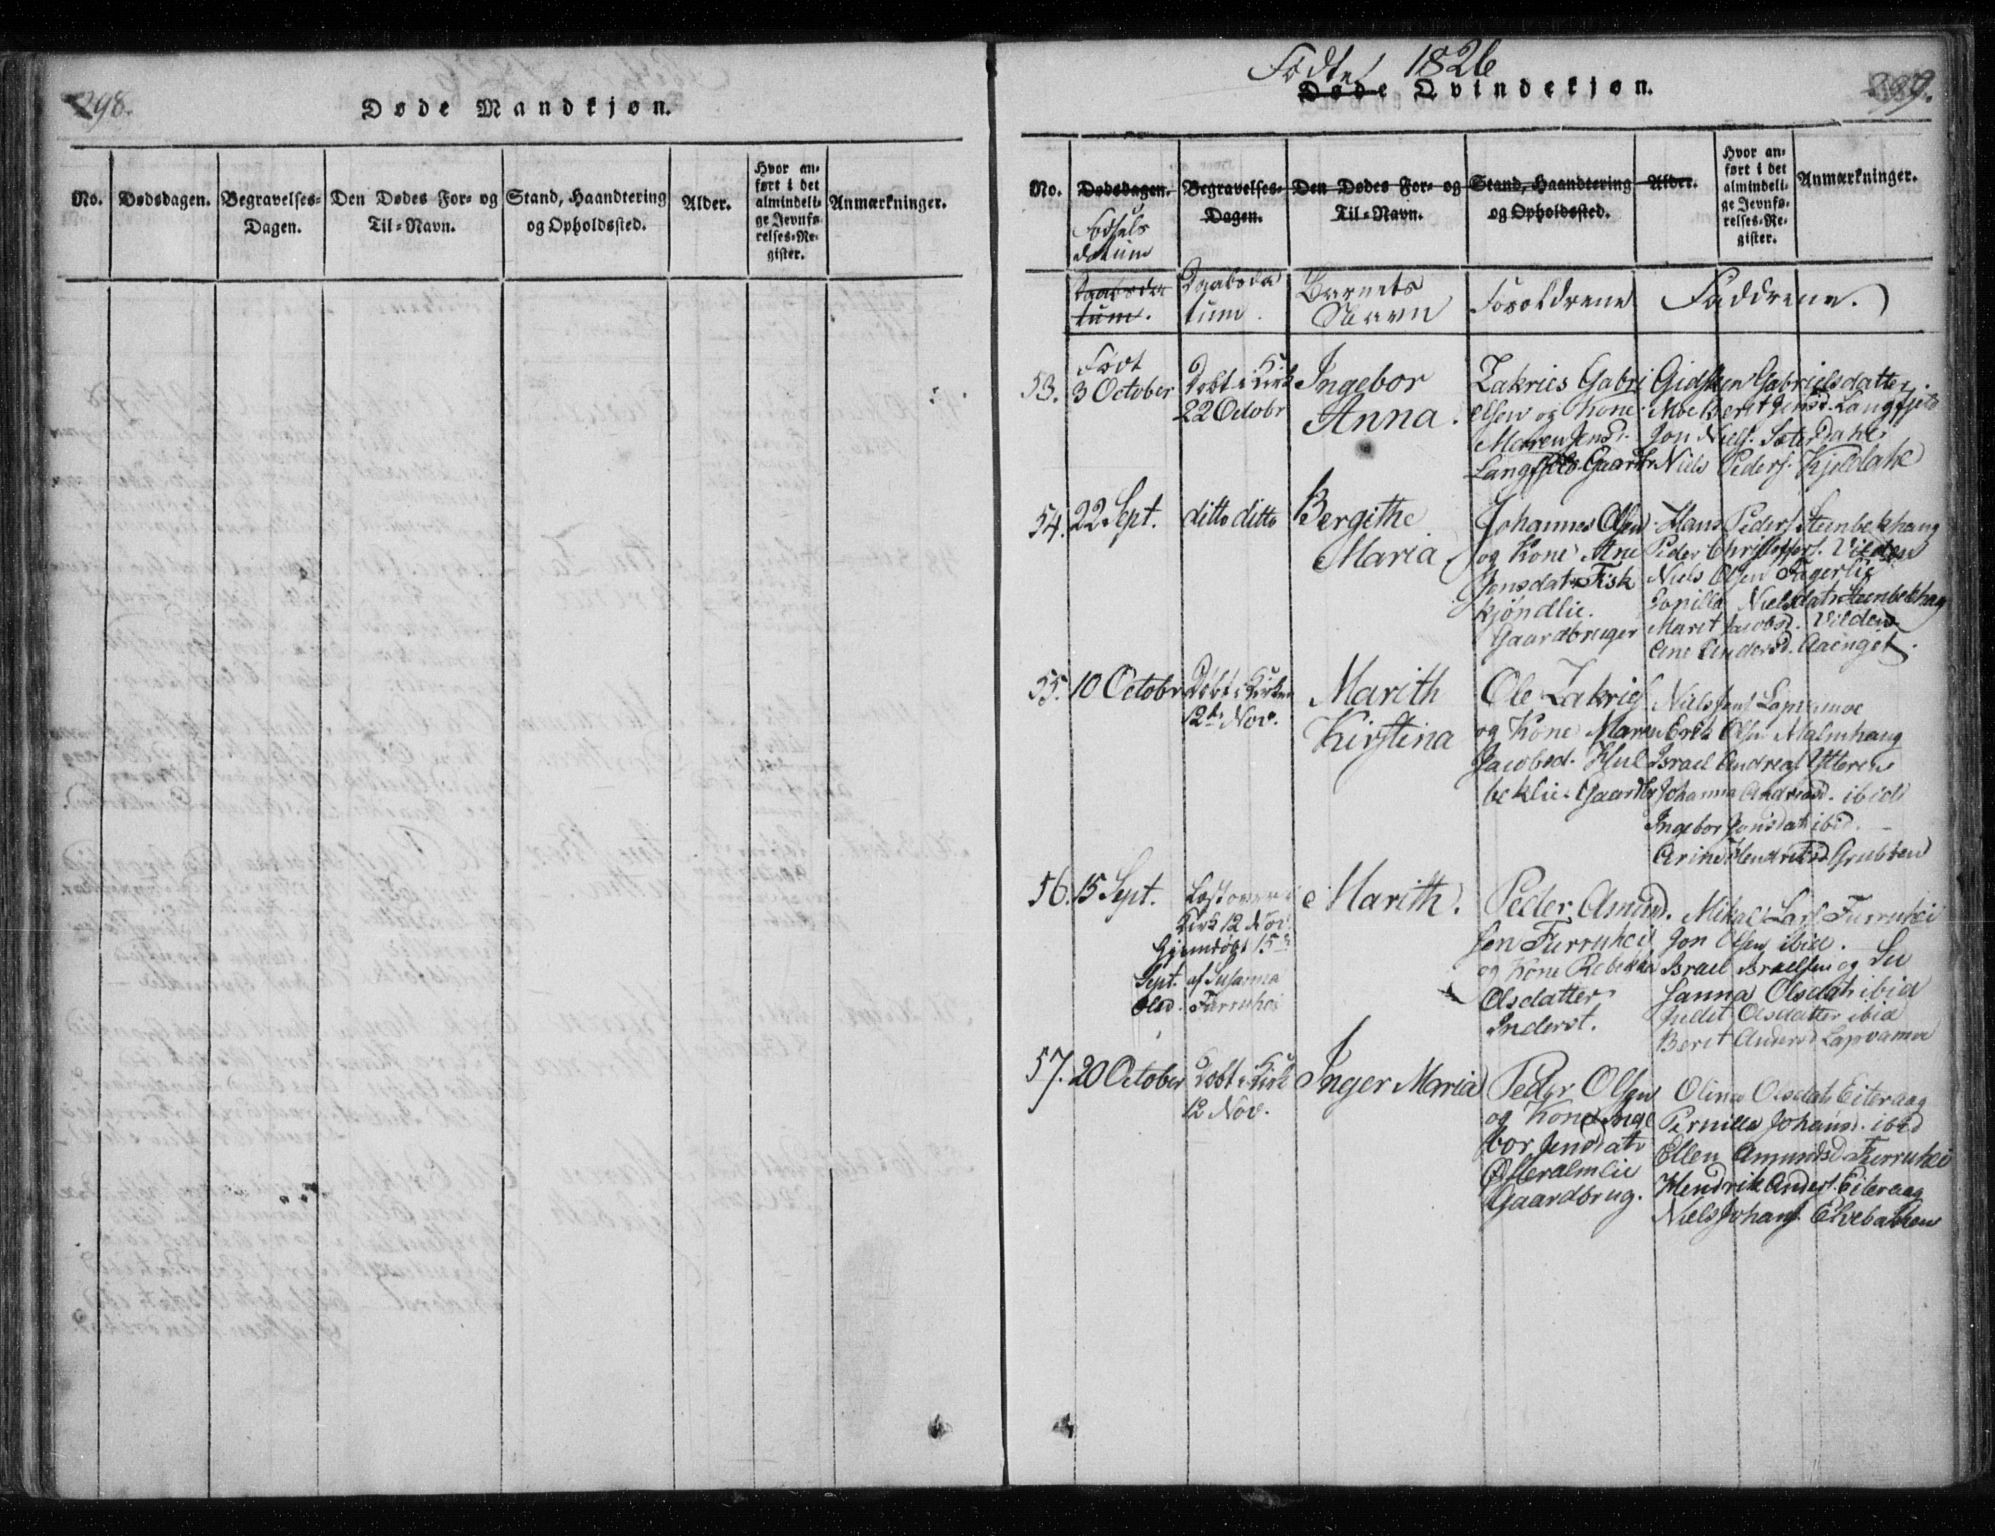 298.
Døde Mandkjøn.
No.
Dødsdagen.
Begravelses-
Dagen.
Den Dødes For- og
Til-Navn.
Stand, Haandtering
og Opholdssted.
Alder.
Hvor an-
ført i det
almindeli-
ge Jevnfø-
relses-Re-
gister.
Anmærkninger.
Fødte 1826
Døde Qvindekjøn.
No.
Dødsdagen.
Fødsels
datum
Begravelses-
Dagen.
Den Dødes For- og
Til-Navn.
Stand, Haandtering
og Opholdssted.
Alder.
Hvor an-
ført i det
almindeli-
ge Jevnfø-
relses-Re-
gister.
Anmærkninger.
Daabsda
tum.
Daabsda
tum.
Barnets
Navn
Forældrene
Faddrene.
53.
Født
3 October
Døbt i Kirk
22 Octobr
Ingebor
Anna.
Zakries Gabri
elsen og Kone
Maren Jensd.
Langfjeld Gaardbr
Gidsken Gabrielsdatter
Moe Berit Jensd. Langfjeld
Jon Niels. Sæterdahl
Niels Peders. Kjeldahl
54.
22 Sept.
ditto ditto
Bergithe
Maria
Johannes Olsen
og Kone Ane
Jensdatr Fisk
kjøndlie.
Gaardbruger
Hans Peders. Steenbekhaug
Peder Christophers. Vilden
Niels Olsen Fagerlie
Pernilla Nielsdatr Steenbekhag
Marit Jacobsd. Vilden
Ane Andersd. Aaenget.
55.
10 Octobr
Døbt i Kirken
12te Nov.
Marith
Kirstina
Ole Zakries
og Kone Maren
Jacobsd. Kul
beklie. Gaardbr
Niels Jens. Lapvamoe
Erik Olsen Malmhaug
Israel Andreas. Ytteren
Johanna Andreasd. ibid
Ingebor Jonsdatr ibid.
Arine Hendriksd Grubben
56.
15 Sept.
Læst over i
Kirk 12 Nov.
Hjemdøbt 15de
Sept. af Susanna
Olsd. Furruhei
Marith.
Peder Amund
sen Furruhei
og Kone Rebekka
Olsdatter
Inderst.
Mikal Lars. Furruhei
Jon Olsen ibid.
Israel Israelsen og Su
sanna Olsdatr ibid
Judet Olsdatter ibid
Berit Andersd Lapvamoe
57.
20 October
Døbt i Kirk
12 Nov.
Inger Maria
Peder Olsen
og Kone Inge
bor Jensdatr
Østeralmlie
Gaardbrug.
Olina Olsdatr Eiteraag
Pernilla Johansd. ibid
Ellen Amundsd Furruhei
Hendrik Anders. Eiteraag
Niels Johans. Elvebakken